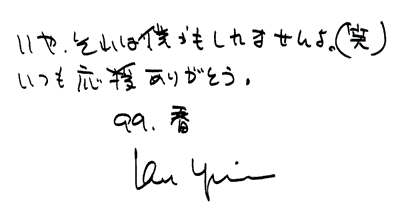 いや、それは僕かもしれませんよ。(笑)
いつも応援ありがとう。
99. 春